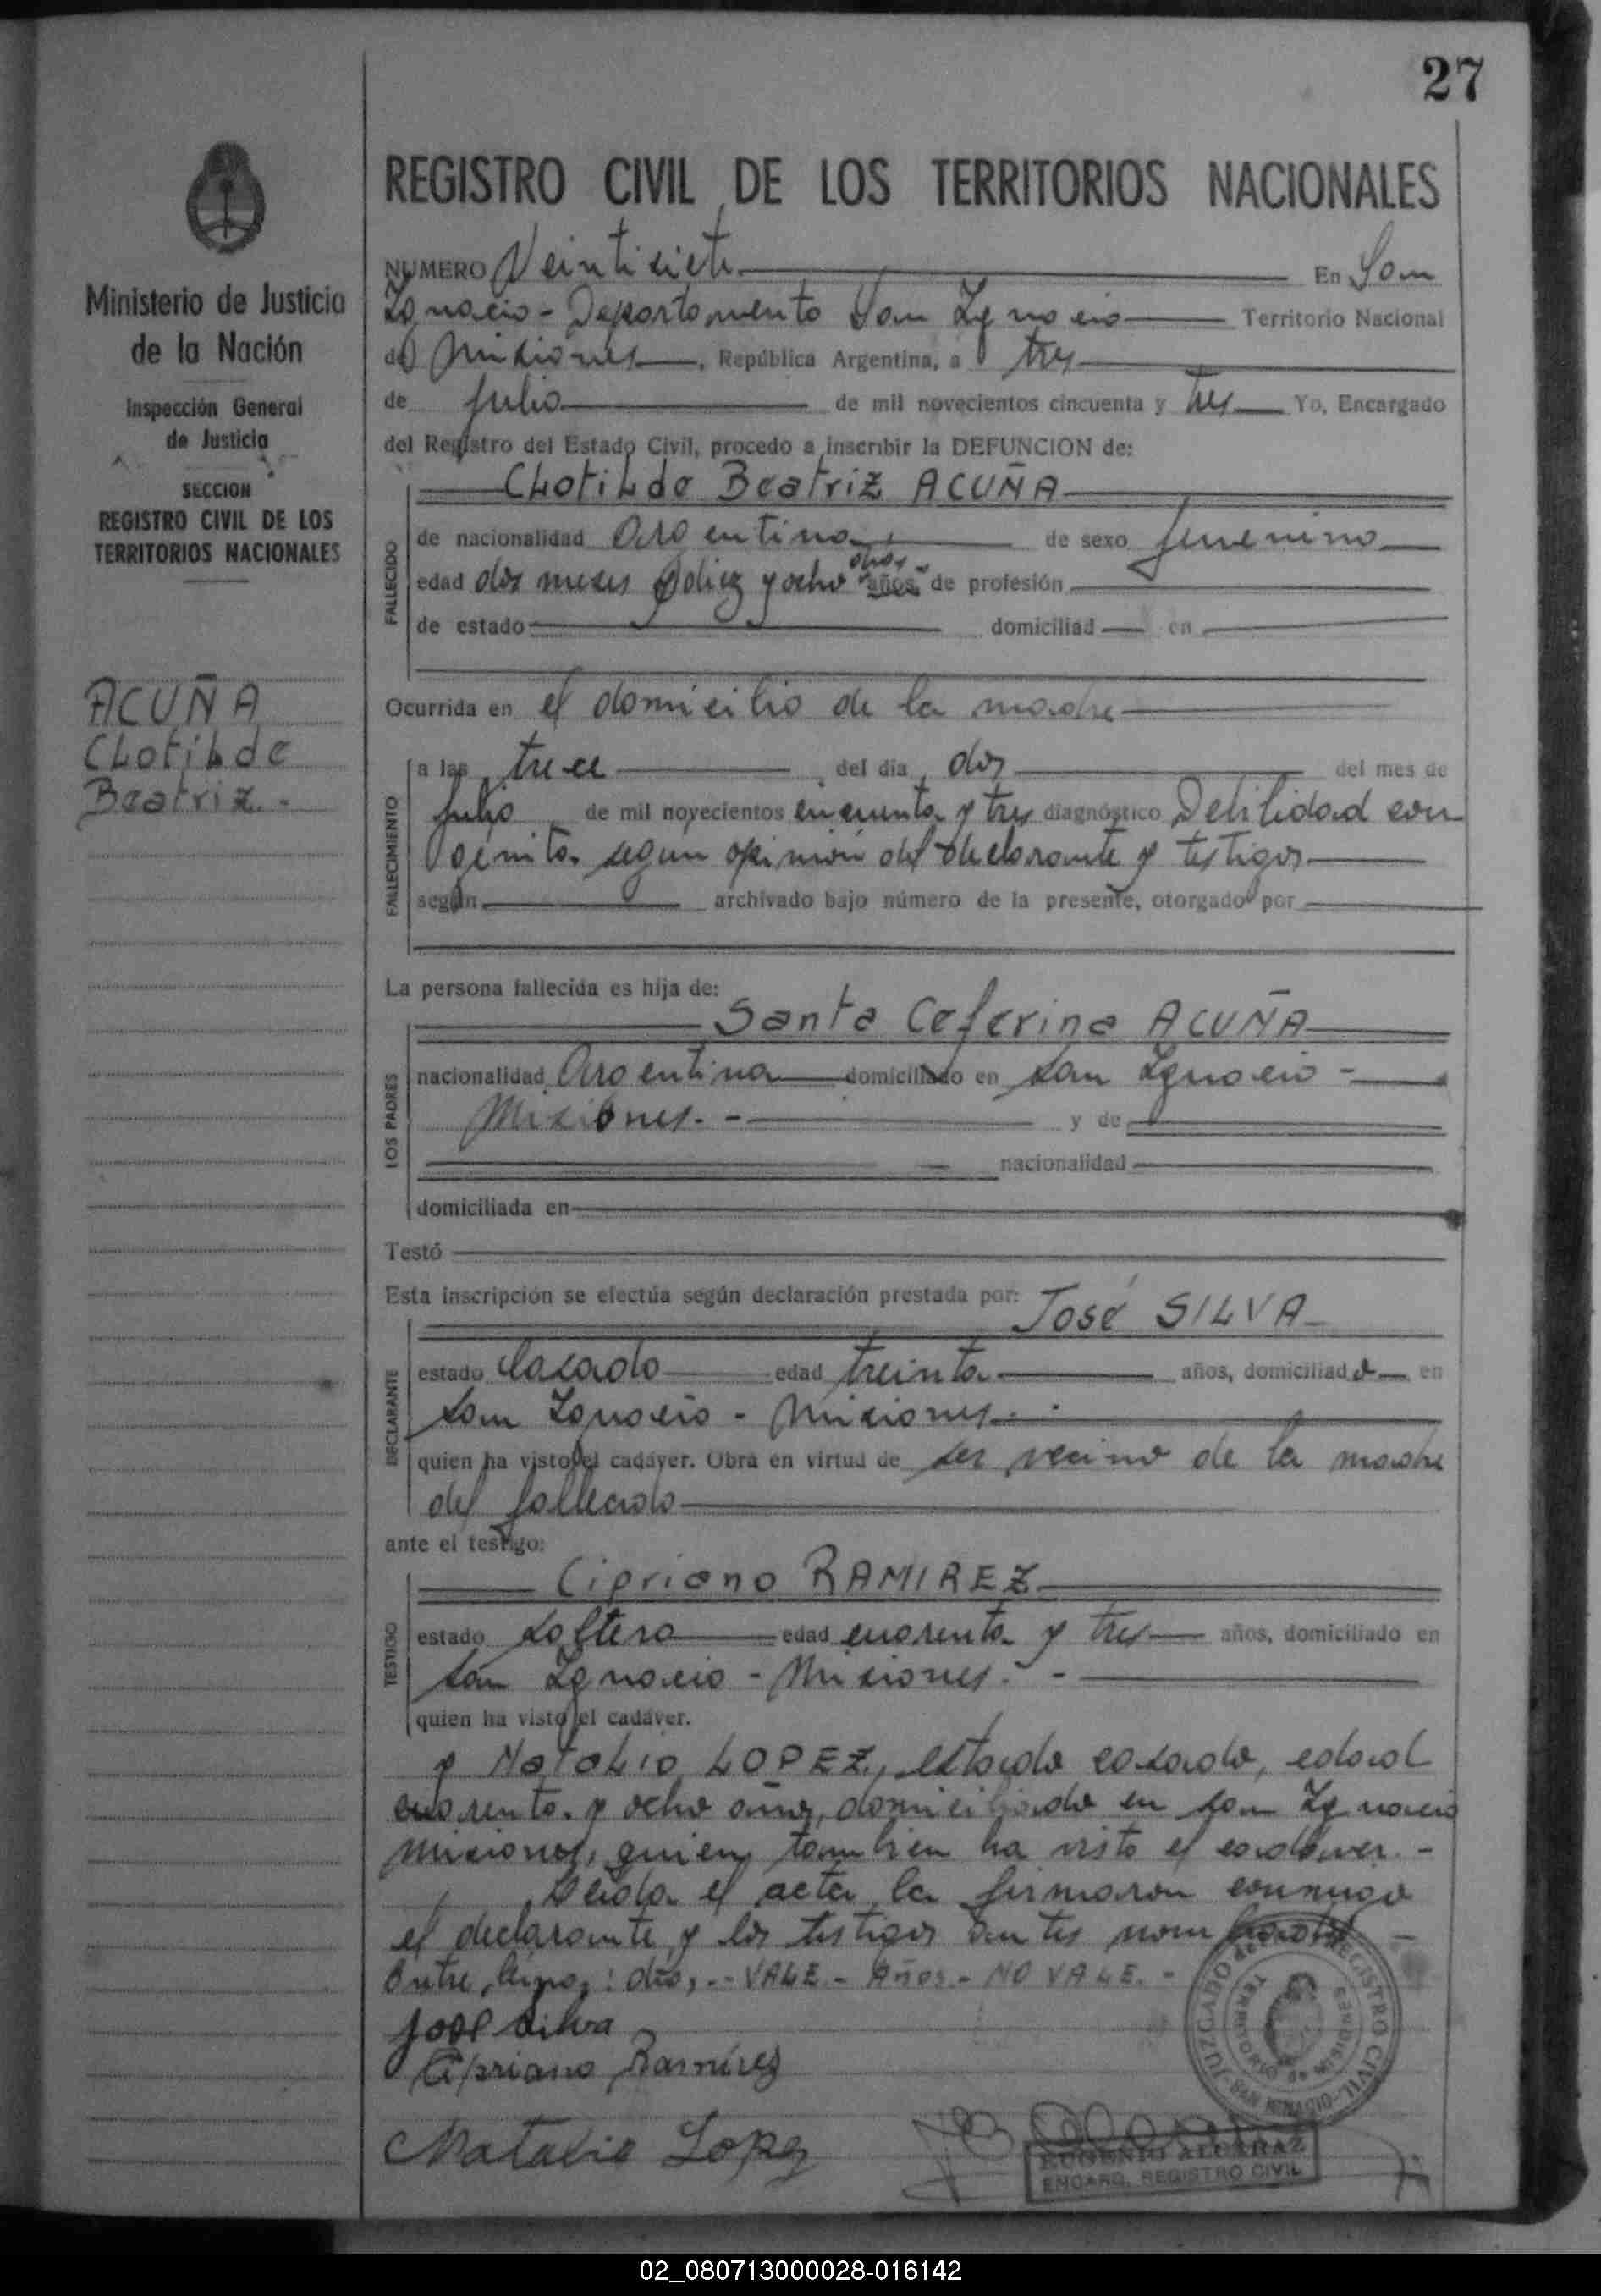 27
REGISTRO CIVIL DE LOS TERRITORIOS NACIONALES
Ministerio de Justicia
de la Nación
Inspección General
de Justicia
SECCION
REGISTRO CIVIL DE LOS
TERRITORIOS NACIONALES
ACUÑA
CLotiLde
Beatriz.-
NUMERO Veintisiete En San
Ignacio - Departamento San Ignacio Territorio Nacional
de Misiones, República Argentina, a tres
de julio de mil novecientos cincuenta y tres Yo, Encargado
del Registro del Estado Civil, procedo a inscribir la DEFUNCION de:
CLotiLde Beatriz ACUÑA
FALLECIDO
de nacionalidad Argentina de sexo femenino
días
edad dos meses y diez y ocho años, de profesión
de estado domiciliad en
Ocurrida en el domicilio de la madre
FALLECIMIENTO
a las trece del día dos del mes de
julio de mil novecientos cincuenta y tres diagnóstico Debilidad con
genita segun opinión del declarante y testigos
según archivado bajo número de la presente, otorgado por
La persona fallecida es hija de:
Santa Ceferina ACUÑA
LOS PADRES
nacionalidad Argentina domiciliado en San Ignacio -
Misiones. - y de
nacionalidad
domiciliada en
Testó
Esta inscripción se efectúa según declaración prestada por:
José SILVA
DECLARANTE
estado Casado edad treinta años, domiciliado en
San Ignacio - Misiones.
quien ha visto el cadáver. Obra en virtud de ser vecino de la madre
del fallecido
ante el testigo:
Cipriano RAMIREZ
TESTIGO
estado soltero edad cuarenta y tres años, domiciliado en
San Ignacio - Misiones. -
quien ha visto el cadáver.
y NataLio LOPEZ, estado casado, edad
cuarenta y ocho años, domiciliado en San Ignacio
Misiones, quien tambien ha visto el cadaver. -
Leida el acta la firmaron conmigo
el declarante y los testigos antes nombrados -
Entre lineas: días, .- VALE.- Años.- NO VALE. -
José Silva
Cipriano Ramirez
Natalio Lopez
JUZGADO de PAZ y REGISTRO CIVIL
TERRITORIO de MISIONES
SAN IGNACIO
EUGENIO ALCARAZ
ENCARG. REGISTRO CIVIL
02_080713000028-016142